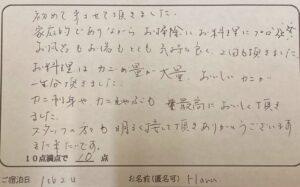 初めて来させて頂きました。
家庭的でありながらお掃除にお料理にプロ
お風呂もお湯もとても気持ち良く、2回も頂きました
お料理はカニの量が大量、おいしいカニが
一生分頂きました。
カニ刺身やカニしゃぶも最高においしく頂き
ました。
スタッフの方も明るく接して頂きありがとうございます
また来たいです。
10点満点で 10 点
ご宿泊日 お名前(匿名可)